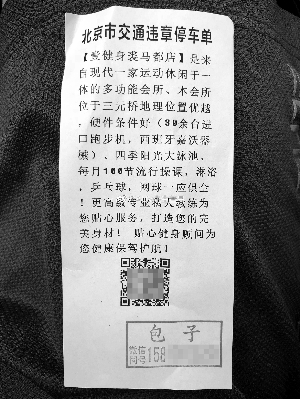 北京市交通违章停车单
【爱健身裘马都店】是来
自现代一家运动休闲于一
体的多功能会所、本会所
位于三元桥地理位置优越
,硬件条件好（80余台进
口跑步机，西班牙嘉沃器
械）、四季阳光大泳池、
每月100节流行操课，淋浴
、乒乓球，网球一应俱全
！更高级专业私人教练为
您贴心服务，打造您的完
美身材！贴心健身顾问为
您健康保驾护航！
包子
微信
同号 158